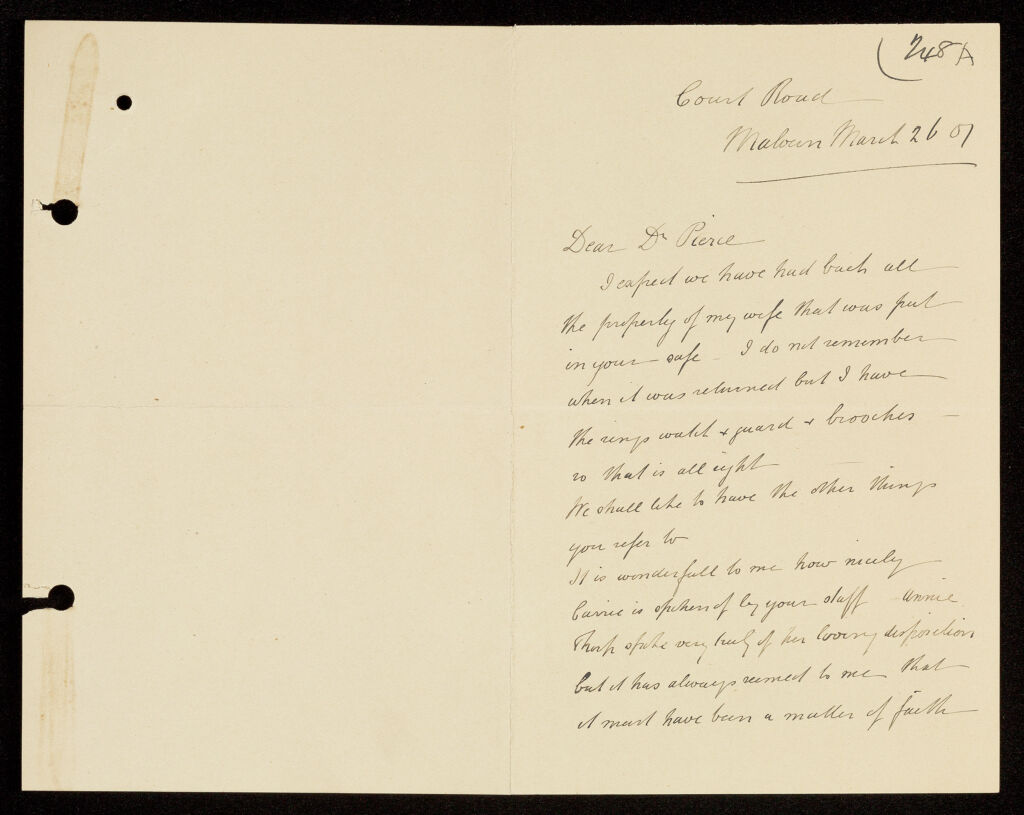 (248A
Court Road
Malvern March 26 07
Dear Dr Pierce
I expect we have had back all
the property of my wife that was put
in your safe - I do not remember
when it was returned but I have
the rings watch & guard & brooches -
so that is all right
We shall like to have the other things
you refer to
It is wonderfull to me how nicely
Carrie is spoken of by your staff Annie
Thorp spoke very truly of her loving disposition
but it has always seemed to me that
it must have been a matter of faith